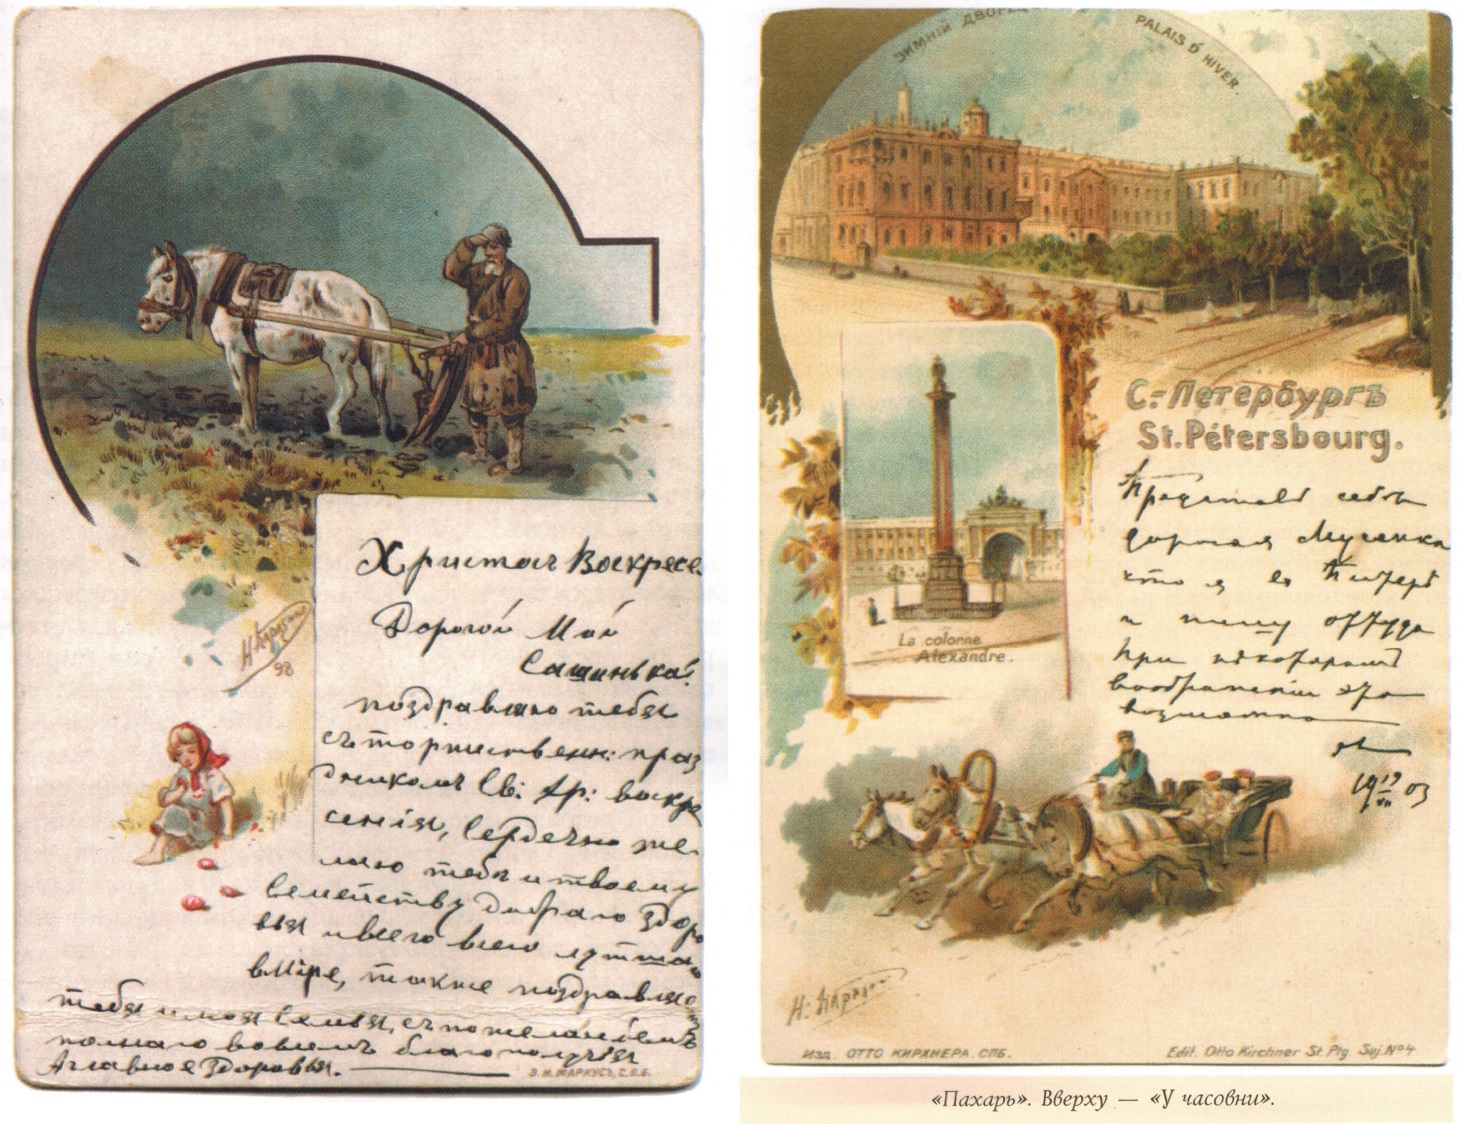 Христосъ Воскресе.
Дорогой Мой
Сашинька!
поздравляю тебя
съ торжествен: праз
дникомъ Св: Хр: воскре
сенія, Сердечно же-
лаю тебѣ и твоему
Семейству добраго Здоро
вья и всего всего лутшаго
въ Міре, также поздравляю
тебя и моя Семья, съ пожеланіемъ
полнаго во всемъ благополучія
А главное Здоровья.
Н Каразин
98
Э. И. МАРКУСЪ, С.П.Б.
ЗИМНІЙ ДВОРЕЦ
PALAIS D'HIVER.
С.-Петербургъ
St. Pétersbourg.
La colonne
Alexandre.
Представь себѣ
дорогая Мусенка
что я въ Питерѣ
и пишу оттуда
При некоторомъ
воображеніи это
возможно
19 19/VII 03
Н: Каразин
Изд. ОТТО КИРХНЕРА. СПБ.
Edit. Otto Kirchner St. Ptg. Suj. №4
«Пахарь». Вверху — «У часовни».